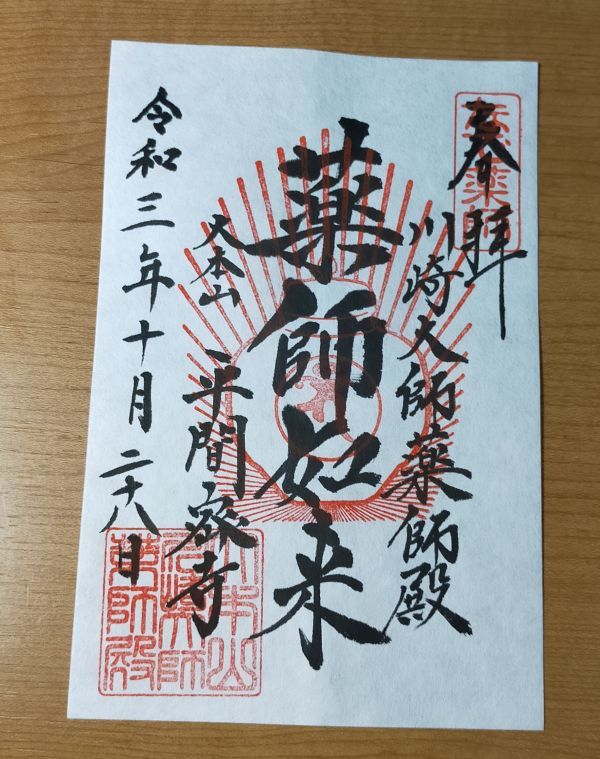 奉拝
川崎大師薬師殿
薬師如来
大本山
平間寺
令和三年十月二十八日
大本山
川崎大師
薬師殿